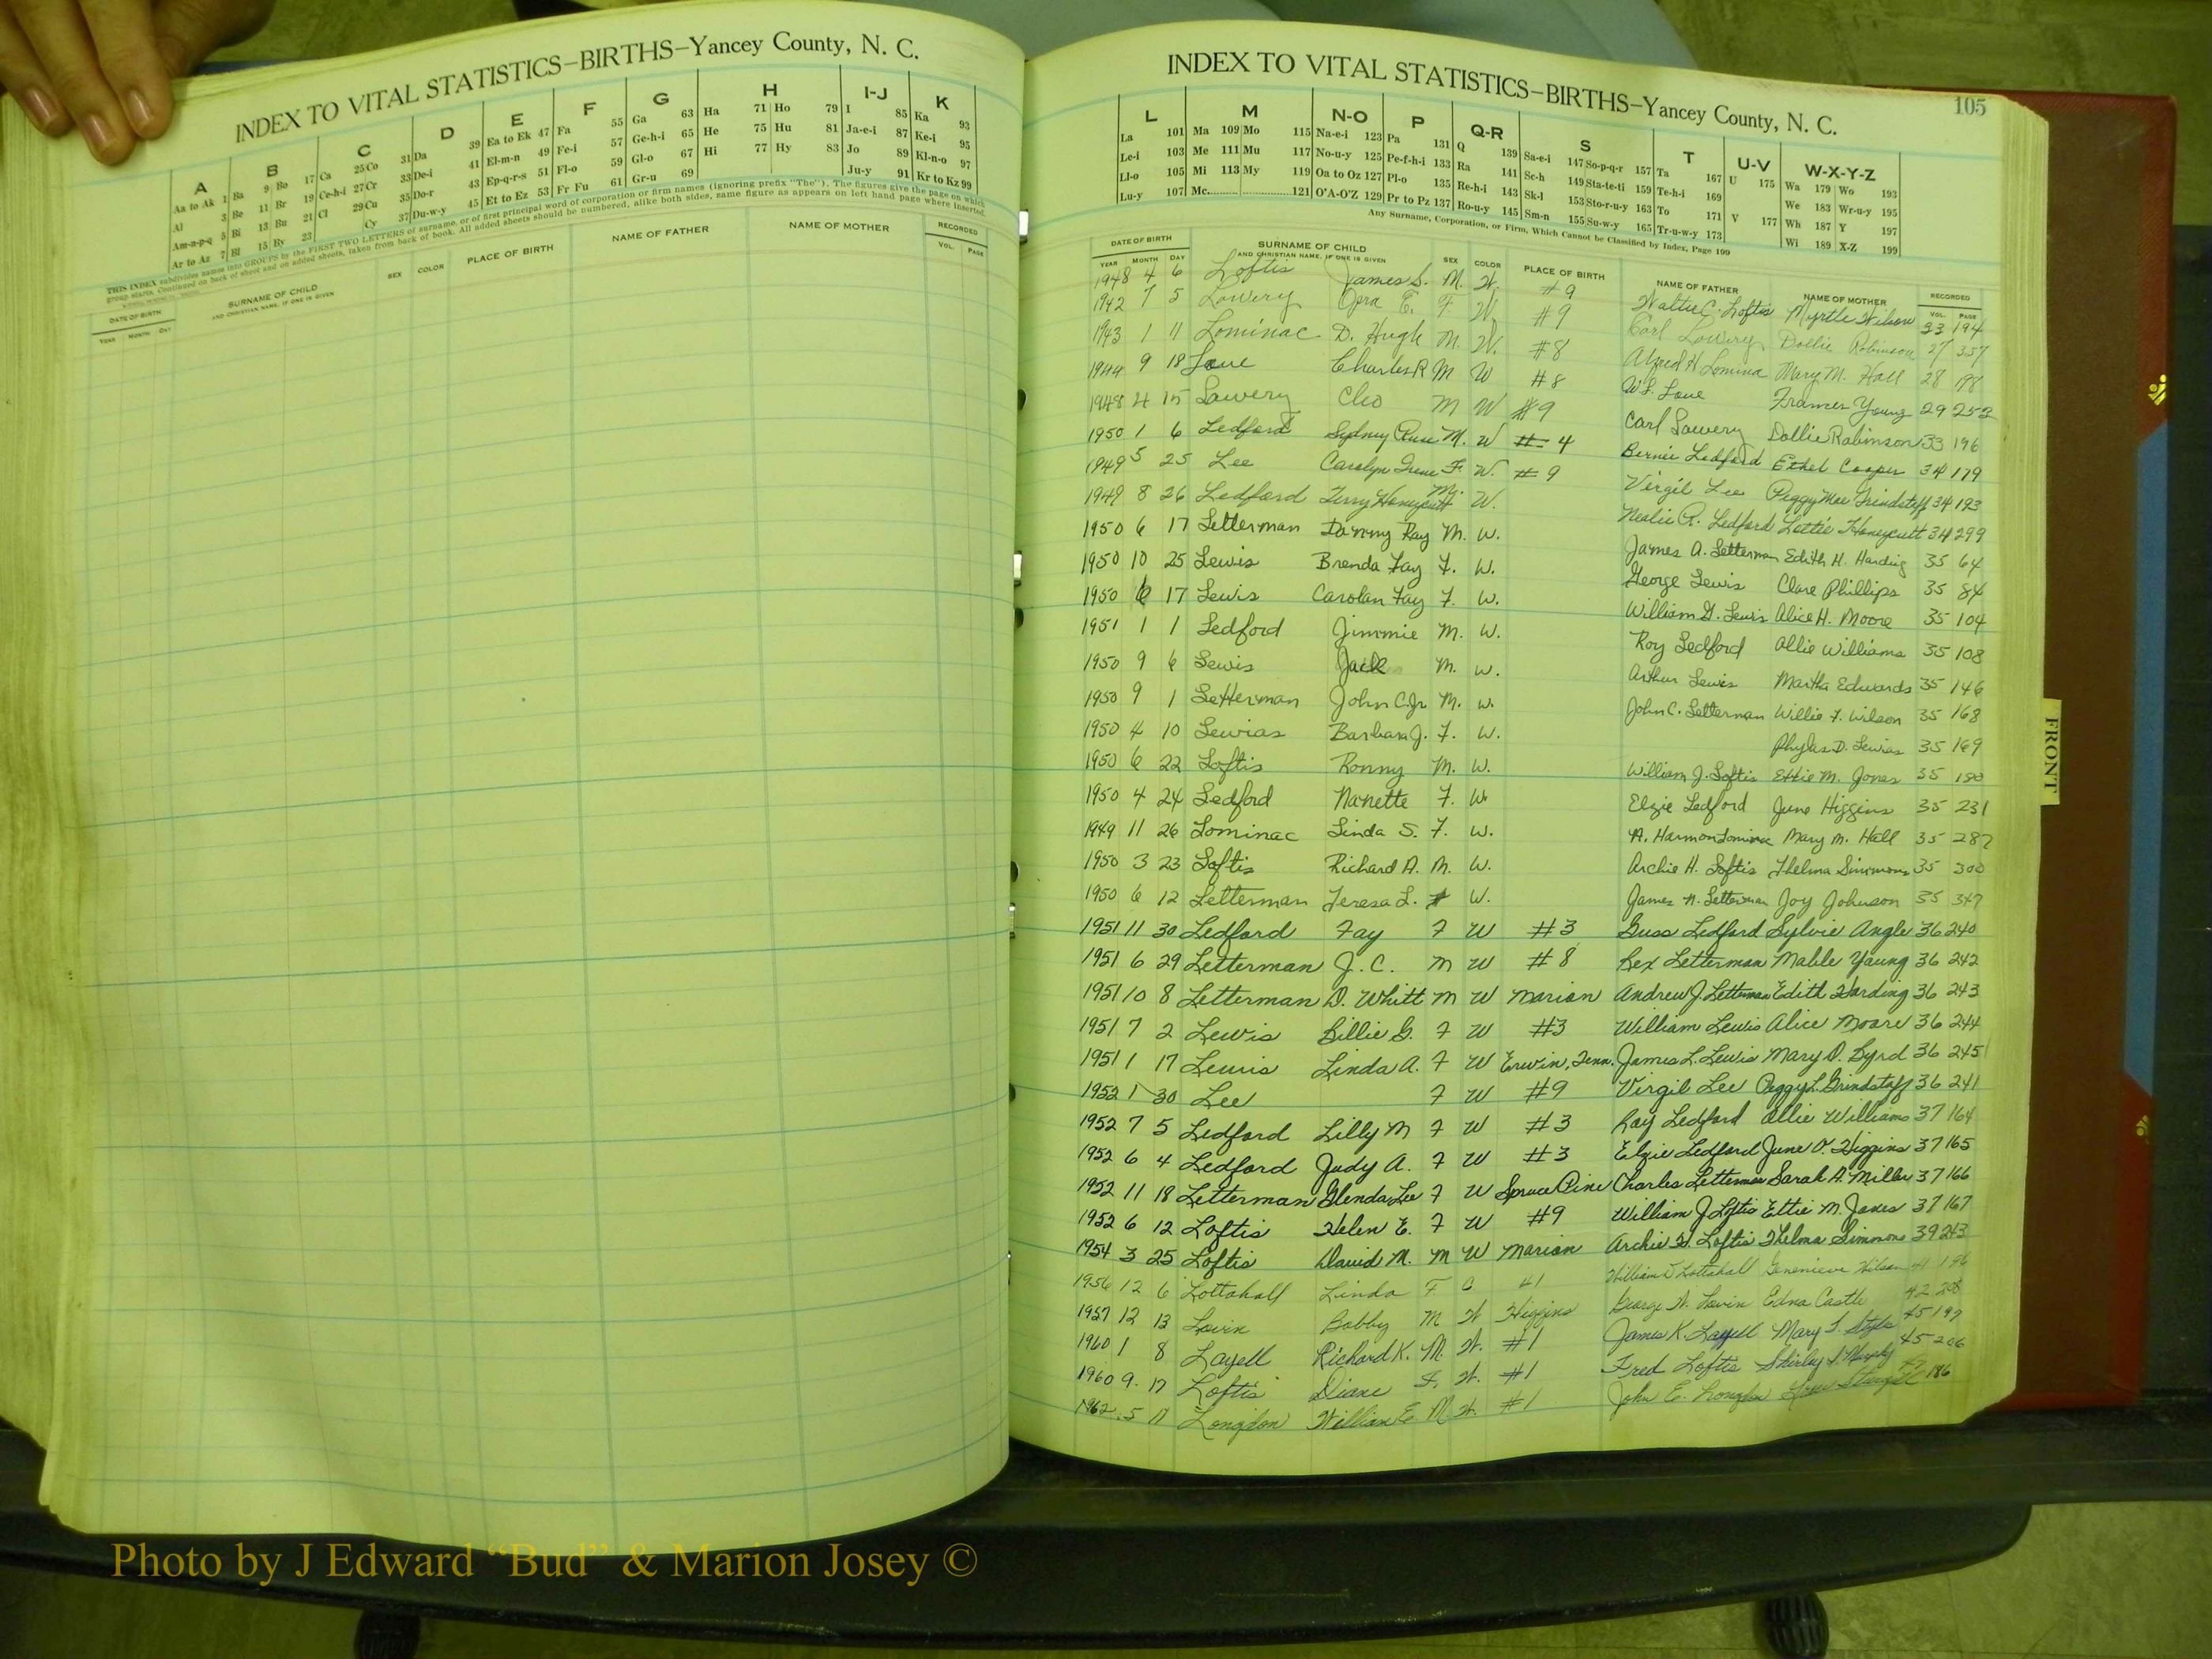 INDEX TO VITAL STATISTICS—BIRTHS—Yancey County, N. C.
A B C D E F G H I-J K
Aa to Ak 1 Ba 9 Bo 17 Ca 25 Co 31 Da 39 Ea to Ek 47 Fa 55 Ga 63 Ha 71 Ho 79 I 85 Ka 93
Al 3 Be 11 Br 19 Ce-h-i 27 Cr 33 De-i 41 El-m-n 49 Fe-i 57 Ge-h-i 65 He 75 Hu 81 Ja-e-i 87 Ke-i 95
Am-n-p-q 5 Bi 13 Bu 21 Cl 29 Cu 35 Do-r 43 Ep-q-r-s 51 Fl-o 59 Gl-o 67 Hi 77 Hy 83 Jo 89 Kl-n-o 97
Ar to Az 7 Bl 15 By 23 Cy 37 Du-w-y 45 Et to Ez 53 Fr Fu 61 Gr-u 69 Ju-y 91 Kr to Kz 99
THIS INDEX subdivides names into GROUPS by the FIRST TWO LETTERS of surname, or of first principal word of corporation or firm names (ignoring prefix "The"). The figures give the page on which
group starts. Continued on back of sheet and on added sheets, taken from back of book. All added sheets should be numbered, alike both sides, same figure as appears on left hand page where inserted.
DATE OF BIRTH SURNAME OF CHILD SEX COLOR PLACE OF BIRTH NAME OF FATHER NAME OF MOTHER RECORDED
YEAR MONTH DAY AND CHRISTIAN NAME, IF ONE IS GIVEN VOL. PAGE
105
INDEX TO VITAL STATISTICS—BIRTHS—Yancey County, N. C.
L M N-O P Q-R S T U-V W-X-Y-Z
La 101 Ma 109 Mo 115 Na-e-i 123 Pa 131 Q 139 Sa-e-i 147 So-p-q-r 157 Ta 167 U 175 Wa 179 Wo 193
Le-i 103 Me 111 Mu 117 No-u-y 125 Pe-f-h-i 133 Ra 141 Sc-h 149 Sta-te-ti 159 Te-h-i 169 We 183 Wr-u-y 195
Ll-o 105 Mi 113 My 119 Oa to Oz 127 Pl-o 135 Re-h-i 143 Sk-l 153 Sto-r-u-y 163 To 171 V 177 Wh 187 Y 197
Lu-y 107 Mc 121 O'A-O'Z 129 Pr to Pz 137 Ro-u-y 145 Sm-n 155 Su-w-y 165 Tr-u-w-y 173 Wi 189 X-Z 199
Any Surname, Corporation, or Firm, Which Cannot be Classified by Index, Page 199
DATE OF BIRTH SURNAME OF CHILD SEX COLOR PLACE OF BIRTH NAME OF FATHER NAME OF MOTHER RECORDED
YEAR MONTH DAY AND CHRISTIAN NAME, IF ONE IS GIVEN VOL. PAGE
1948 4 6 Loftis James S. M. W. #9 C. Loftis Myrtle Wilson 33 194
1942 7 5 Lowery Opra E. F. W. #9 Carl Lowery Dollie Robinson 27 357
1943 1 11 Lominac D. Hugh M. W. #8 Alfred H Lomina Mary M. Hall 28
1944 9 18 Love Charles R M W #8 W.S. Love Frances Young 29 252
1948 4 15 Lowery Cleo M W #9 Carl Lowery Dollie Robinson 33 196
1950 1 6 Ledford Sydney M. W # 4 Bernie Ledford Ethel Cooper 34 179
1949 5 25 Lee Carolyn Irene F W. #9 Virgil Lee Peggy Mae Grindstaff 34 193
1949 8 26 Ledford Terry Honeycutt M. W. Nealie R. Ledford Lottie Honeycutt 34 299
1950 6 17 Letterman Danny Ray M. W. James A. Letterman Edith H. Harding 35 64
1950 10 25 Lewis Brenda Fay F. W. George Lewis Clare Phillips 35 84
1950 6 17 Lewis Carolan Fay F. W. William G. Lewis Alice H. Moore 35 104
1951 1 1 Ledford Jimmie M. W. Roy Ledford Allie Williams 35 108
1950 9 6 Lewis Jack M. W. Arthur Lewis Martha Edwards 35 146
1950 9 1 Letterman John C. Jr. M. W. John C. Letterman Willie F. Wilson 35 168
1950 4 10 Lewias Barbara J. F. W. Phylas D. Lewias 35 169
1950 6 22 Loftis Ronny M. W. William J. Loftis Ettie M. Jones 35 180
1950 4 24 Ledford Nanette F. W. Elzie Ledford June Higgins 35 231
1949 11 26 Lominac Linda S. F. W. A. Harmon Lominac Mary M. Hall 35 287
1950 3 23 Loftis Richard A. M. W. Archie H. Loftis Thelma Simmons 35 300
1950 6 12 Letterman Teresa L. F W. James N. Letterman Joy Johnson 35 347
1951 11 30 Ledford Fay F W #3 Guss Ledford Sylvie Angle 36 240
1951 6 29 Letterman J. C. M W #8 Rex Letterman Mable Young 36 242
1951 10 8 Letterman D. Whitt M W Marion Andrew J. Letterman Edith Harding 36 243
1951 7 2 Lewis Billie G. F W #3 William Lewis Alice Moore 36 244
1951 1 17 Lewis Linda A. F W Erwin, Tenn. James L. Lewis Mary D. Byrd 36 245
1952 1 30 Lee F W #9 Virgil Lee Peggy L. Grindstaff 36 241
1952 7 5 Ledford Lilly M F W #3 Ray Ledford Allie Williams 37 164
1952 6 4 Ledford Judy A. F W #3 Elzie Ledford June V. Higgins 37 165
1952 11 18 Letterman Glenda Lee F W Spruce Pine Charles Letterman Sarah A. Miller 37 166
1952 6 12 Loftis Helen E. F W #9 William J Loftis Ettie M. Jones 37 167
1954 3 25 Loftis David M. M W Marion Archie H. Loftis Thelma Simmons 39 243
1956 12 6 Lottahall Linda F C #1 William D Lottahall Genenieve Wilson 41 196
1957 12 13 Lovin Bobby M W Higgins George W. Lovin Edna Castle 42 208
1960 1 8 Layell Richard K. M. W. #1 James K. Layell Mary L. Style 45 197
1960 9 17 Loftis Diane F. W. #1 Fred Loftis Shirley J. Murphy 45 206
1962 5 11 Longdon William E. M W. #1 John E. 47 186
FRONT
Photo by J Edward “Bud” & Marion Josey ©